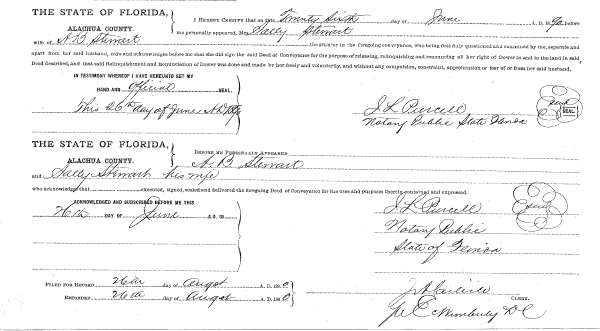 THE STATE OF FLORIDA,
ALACHUA COUNTY.
I HEREBY CERTIFY that on this Twenty Sixth day of June A. D. 1890 before
me personally appeared, Mrs. Sally Stewart
wife of A. B Stewart the grantor in the foregoing conveyance, who being first duly questioned and examined by me, separate and
apart from her said husband, says and acknowledges before me that she did sign the said Deed of Conveyance for the purpose of releasing, relinquishing and renouncing all her right of Dower in and to the land in said
Deed described, and that said Relinquishment and Renunciation of Dower was done and made by her freely and voluntarily, and without any compulsion, constraint, apprehension or fear of or from her said husband.
IN TESTIMONY WHEREOF I HAVE HEREUNTO SET MY
HAND AND official SEAL.
This 26th day of June A.D.
J. L Purcell
Notary Public State
Seal
SEAL
THE STATE OF FLORIDA,
ALACHUA COUNTY.
BEFORE ME PERSONALLY APPEARED
A. B Stewart
and Sally Stewart his wife
who acknowledge that executed, signed, sealed and delivered the foregoing Deed of Conveyance for the uses and purposes therein contained and expressed.
ACKNOWLEDGED AND SUBSCRIBED BEFORE ME THIS
26th DAY OF June A.D. 18
J. L Purcell
Notary Public
State of
Seal
FILED FOR RECORD 26th day of August A. D. 1890
RECORDED 26th day of August A. D. 1890
CLERK.
D C